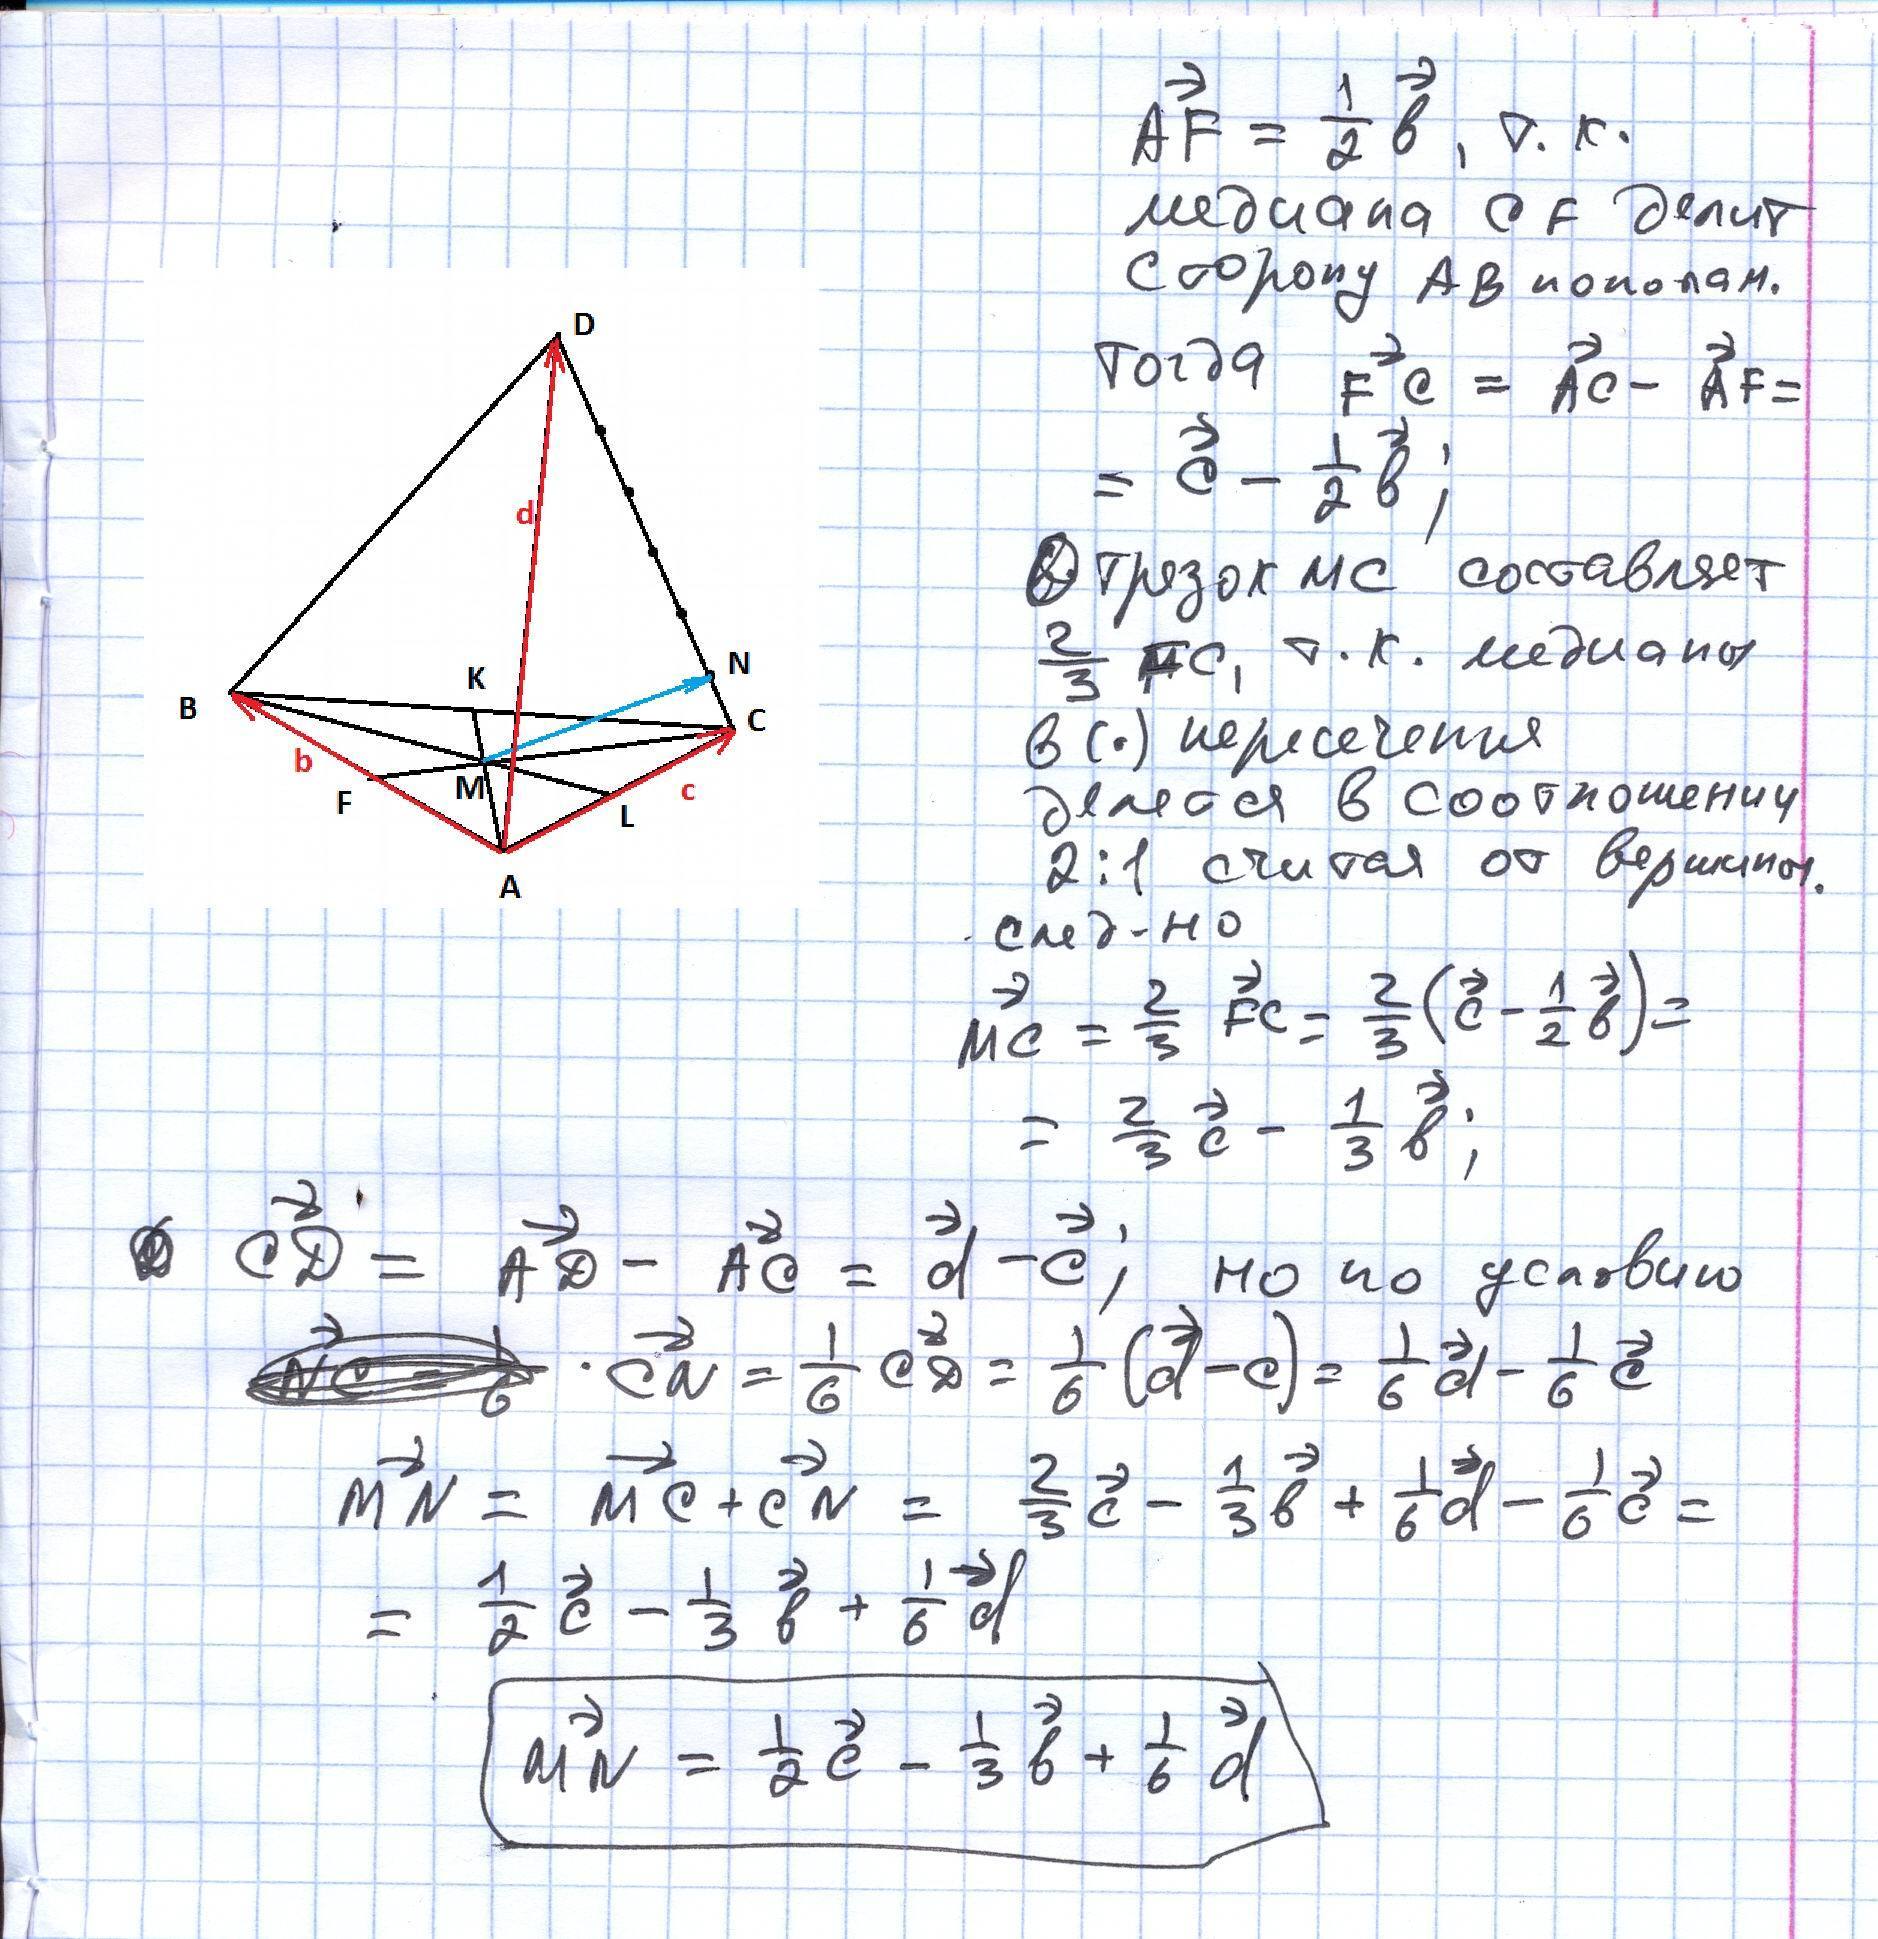 AF⃗ = 1/2 b⃗, т.к.
медиана CF делит
сторону AB пополам.
Тогда FC⃗ = AC⃗ - AF⃗ =
= c⃗ - 1/2 b⃗;
Отрезок MC составляет
2/3 FC, т.к. медианы
в (·) пересечения
делятся в соотношении
2:1 считая от вершины.
след-но
MC⃗ = 2/3 FC⃗ = 2/3 (c⃗ - 1/2 b⃗) =
= 2/3 c⃗ - 1/3 b⃗;
D
d
N
K
B
C
b
M
c
F
L
A
CD⃗ = AD⃗ - AC⃗ = d⃗ - c⃗; но по условию
· CN⃗ = 1/6 CD⃗ = 1/6 (d⃗ - c) = 1/6 d⃗ - 1/6 c⃗
MN⃗ = MC⃗ + CN⃗ = 2/3 c⃗ - 1/3 b⃗ + 1/6 d⃗ - 1/6 c⃗ =
= 1/2 c⃗ - 1/3 b⃗ + 1/6 d⃗
MN⃗ = 1/2 c⃗ - 1/3 b⃗ + 1/6 d⃗